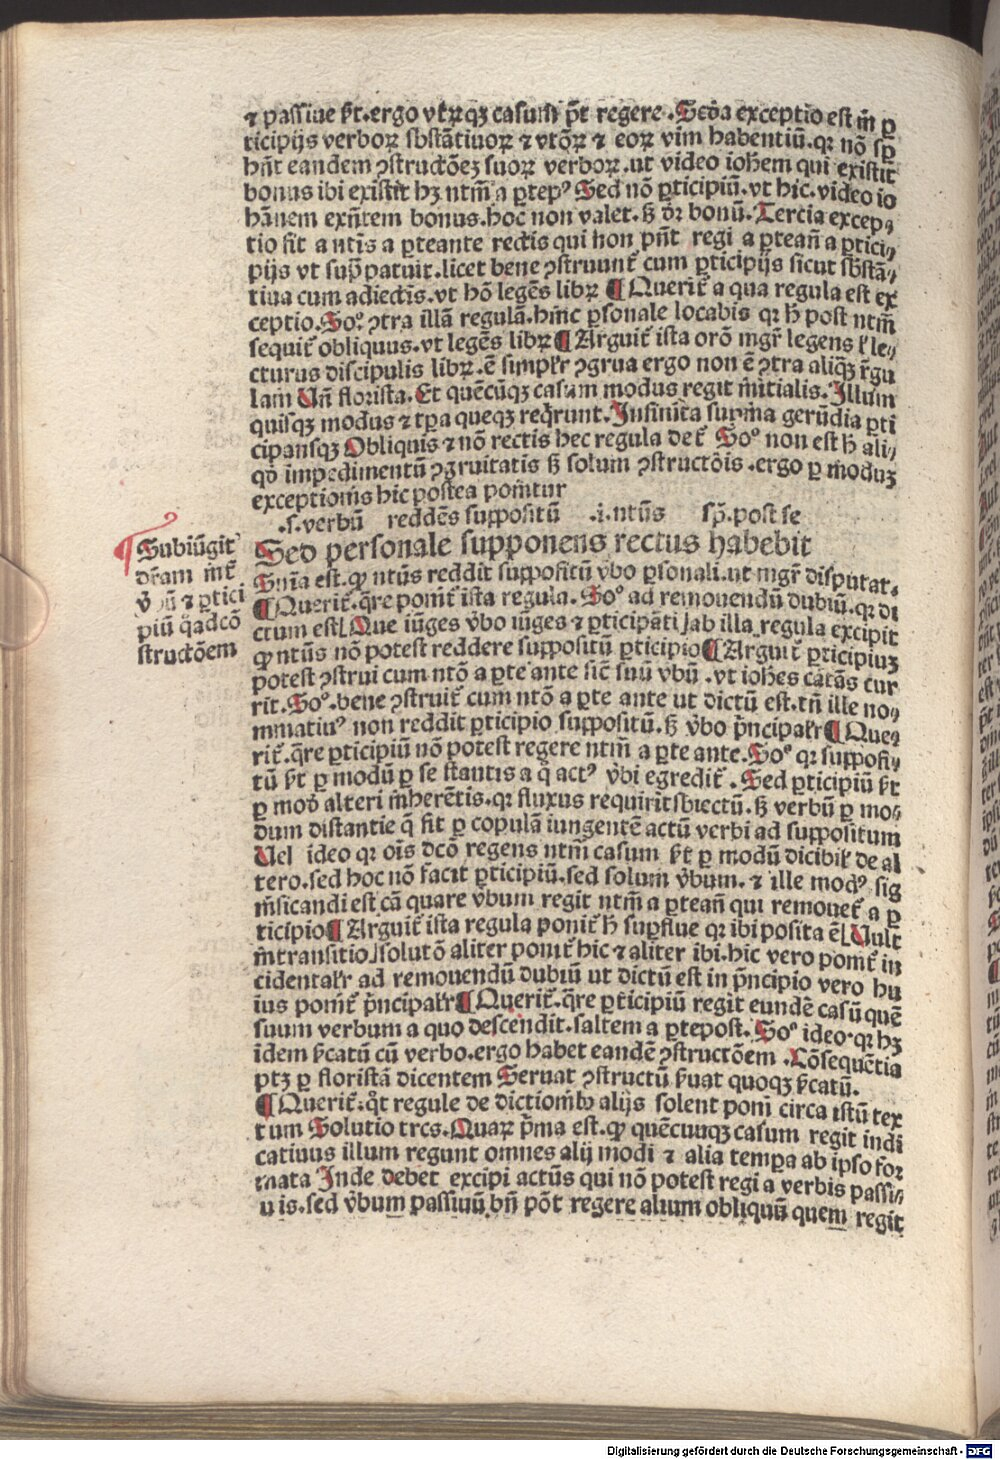 ⁊ passiue ẜt.ergo vtrꝫqꝫ casum p̄t regere.Scd̓a exceptio est in̄ ꝑ
ticipijs verboꝝ sbstātiuoꝝ ⁊ vtōꝝ ⁊ eoꝝ vim habentiū.qꝛ nō sp̄
hn̄t eandem ↄstructōeꝫ suoꝝ verboꝝ.ut video ioh̄em qui existit
bonus ibi existit hꝫ ntm̄ a ꝑtep⁹ Sed nō ꝑticipiū.vt hic.video io
hānem exn̄tem bonus.hoc non valet.ꝭ dꝛ bonū.Tercia excep⸗
tio fit a ntīs a ꝑteante rectis qui non pn̄t regi a ꝑtean̄ a ꝑtici⸗
pijs vt sup̄ patuit.licet bene ↄstruunt̄ cum ꝑticipijs sicut sb̄stā⸗
tiua cum adiectīs.vt hō legēs libꝝ ¶ Querit̄ a qua regula est ex
ceptio.So⁹ ↄtra illā regulā.hinc ꝑsonale locabis qꝛ h̄ post ntm̄
sequit̄ obliquus.vt legēs libꝝ ¶ Arguit̄ ista orō mgr̄ legens ł le⸗
cturus discipulis libꝝ.ē simplr̄ ↄgrua ergo non ē ↄtra aliq̄ꝫ r̄gu
lam Un̄ florista.Et quēcūqꝫ casum modus regit in̄itialis.Illum
quisqꝫ modus ⁊ tꝑa queqꝫ reqͥrunt.Infinita supīna gerūdia ꝑti
cipansqꝫ Obliquis ⁊ nō rectis hec regula det̄ So⁹ non est h̄ ali⸗
qd̓ impedimentū ↄgruitatis ꝭ solum ↄstructōis.ergo ꝑ moduꝫ
exceptionis hic postea ponitur
.s.verbū reddēs suppositū .i.ntūs sp̄.post se
Sed personale supponens rectus habebit
Sūia est.ꝙ ntūs reddit suppositū v̓bo ꝑsonali.ut mgr̄ disputat.
¶ Querit̄.qr̄e ponit̄ ista regula.So⁹ ad remouendū dubiū.qꝛ di
ctum est Que iūges v̓bo iūges ⁊ ꝑticipati ab illa regula excipit
ꝙ ntūs nō potest reddere suppositū ꝑticipio ¶ Arguit̄ ꝑticipiuꝫ
potest ↄstrui cum ntō a ꝑte ante sic̄ suū v̓bū.vt ioh̄es cātās cur
rit.So⁹.bene ↄstruit̄ cum ntō a ꝑte ante ut dictū est.tn̄ ille no⸗
minatiu⁹ non reddit ꝑticipio suppositū.ꝭ v̓bo pͥncipalr̄ ¶ Que⸗
rit̄.qr̄e ꝑticipiū nō potest regere ntm̄ a ꝑte ante.So⁹ qꝛ supposi⸗
tū ẜt ꝑ modū ꝑ se stantis a q̄ act⁹ v̓bi egredit̄.Sed ꝑticipiū ẜt
ꝑ mod̓ alteri inherētis.qꝛ fluxus requirit sbiectū.ꝭ verbū ꝑ mo⸗
dum distantie q̄ fit ꝑ copulā iungentē actū verbi ad suppositum
Uel ideo qꝛ oīs dcō regens ntm̄ casum ẜt ꝑ modū dicibił de al
tero.sed hoc nō facit ꝑticipiū.sed solum v̓bum.⁊ ille mod⁹ sig
nificandi est cā quare v̓bum regit ntm̄ a ꝑtean̄ qui remouet̄ a ꝑ
ticipio ¶ Arguit̄ ista regula ponit̄ h̄ suꝑflue qꝛ ibi posita ē Uult
intransitio solutō aliter ponit̄ hic ⁊ aliter ibi.hic vero ponit̄ in
cidentalr̄ ad remouendū dubiū ut dictū est in pͥncipio vero hu
ius ponit̄ pͥncipalr̄ ¶ Querit̄.qr̄e ꝑticipiū regit eundē casū quē
suum verbum a quo descendit.saltem a ꝑtepost.So⁹ ideo.qꝛ hꝫ
idem ẜcatū cū verbo.ergo habet eandē ↄstructōem.Cōsequētia
ptꝫ ꝑ floristā dicentem Seruat ↄstructū ẜuat quoqꝫ ẜcatū.
¶ Querit̄.qͦt regule de dictionibꝫ alijs solent poni circa istū tex
tum Solutio tres.Quaꝝ pͥma est.ꝙ quēcunqꝫ casum regit indi
catiuus illum regunt omnes alij modi ⁊ alia tempꝛa ab ipso for
mata Inde debet excipi actūs qui nō potest regi a verbis passi⸗
uis.sed v̓bum passiuū bn̄ pōt regere alium obliquū quem regit
Subiūgit
dr̄iam int̄
v̓bū ⁊ ꝑtici
piū q̄adcō
structōem
Digitalisierung gefördert durch die Deutsche Forschungsgemeinschaft - DFG